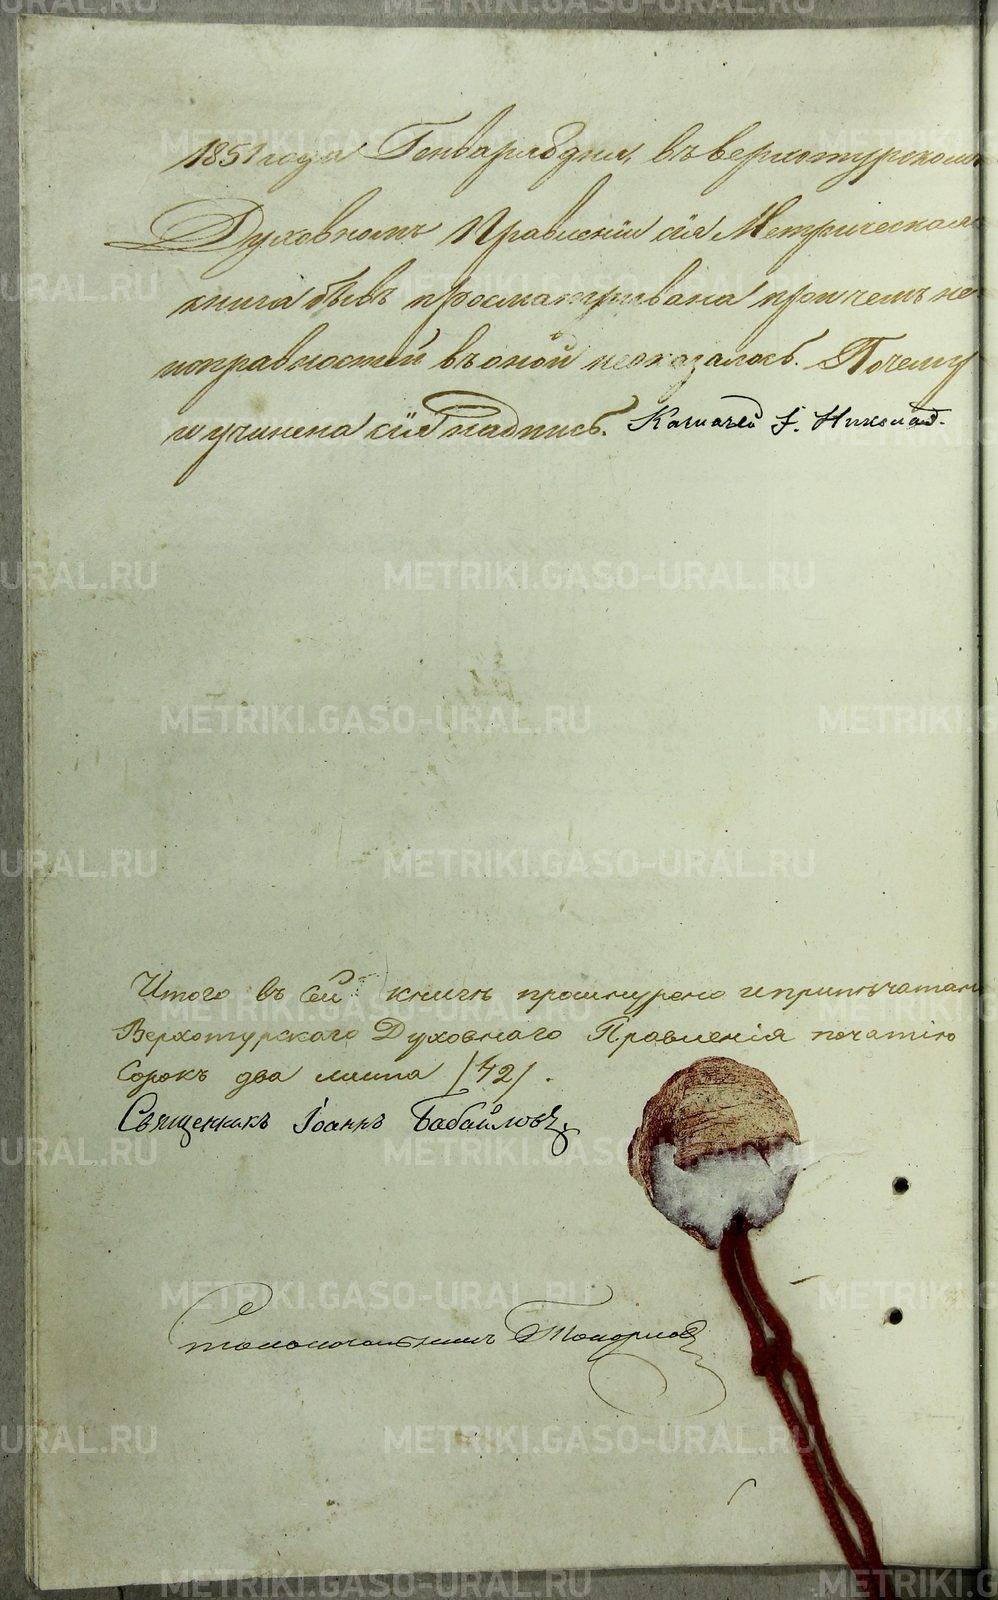 1851 года Генваря дня, въ верхотурскомъ
Духовномъ Правленіи сія Метрическая
книга бывъ просматривана при чемъ не
исправностей въ оной неоказалось. Почему
и учинена сія надпись. Николай.
Итого въ сей книгѣ прошнурено и припечатано
Верхотурскаго Духовнаго Правленія печатію
Сорокъ два листа /42/.
Священникъ Іоаннъ Бабайловъ.
Столоначальникъ
METRIKI.GASO-URAL.RU